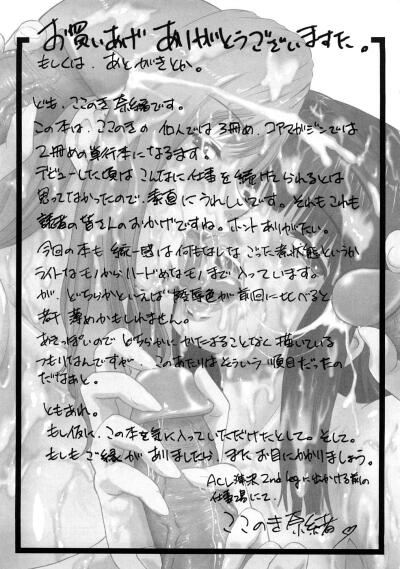 お買いあげ ありがとうございますた。
もしくは、あとがきとか。
ども、ここのき奈緒です。
この本は、ここのきの 個人では3冊め、コアマガジンでは
2冊めの単行本になるます。
デビューした頃は こんなに仕事を続けてられるとは
思ってなかったので、素直にうれしいです。それもこれも
読者の皆さんのおかげですね。ホント ありがたい。
今回の本も 統一感は何もなしな ごった煮状態というか
ライトなモノからハードめなモノまで入っています。
が、どちらかといえば 陵辱色が前回に比べると
若干 薄めかもしれません。
あきっぽいので どちらかにかたよることなく描いている
つもりなんですが、このあたりはそういう 順目だったの
だなあと。
ともあれ。
もし仮に、この本を気に入っていただけたとして。そして。
もしもご縁がありましたら、またお目にかかりましょう。
ACL 2nd legに出かける前の
仕事場にて。
ここのき奈緒